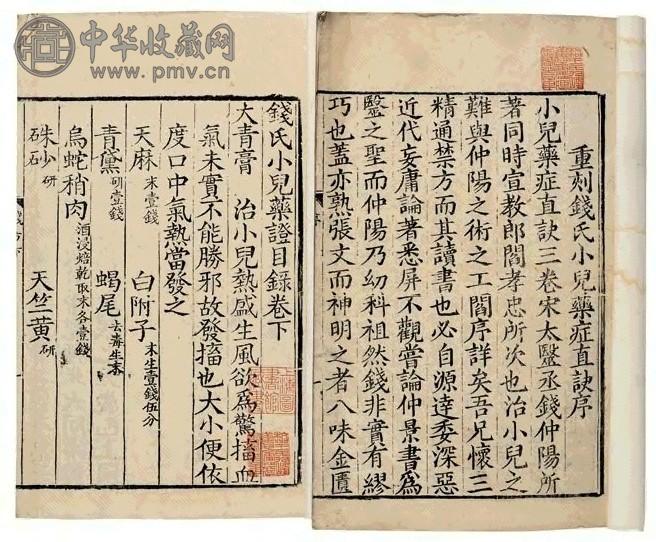 中华收藏网
www.pmv.cn
重刻錢氏小兒藥症直訣序
小兒藥症直訣三卷宋太醫丞錢仲陽所
著同時宣教郎閻孝忠所次也治小兒之
難與仲陽之術之工閻序詳矣吾兄懷三
精通禁方而其讀書也必自源達委深惡
近代妄庸論著悉屏不觀嘗論仲景書為
毉之聖而仲陽乃幼科祖然錢非實有繆
巧也蓋亦熟張文而神明之者八味金匱
錢氏小兒藥證目錄卷下
大青膏 治小兒熱盛生風欲為驚搐血
氣未實不能勝邪故發搐也大小便依
度口中氣熱當發之
天麻 末壹錢 白附子 末生壹錢伍分
青黛 研壹錢 蝎尾 去毒生末
烏蛇稍肉 酒浸焙乾取末各壹錢
硃砂 研 天竺黃 研